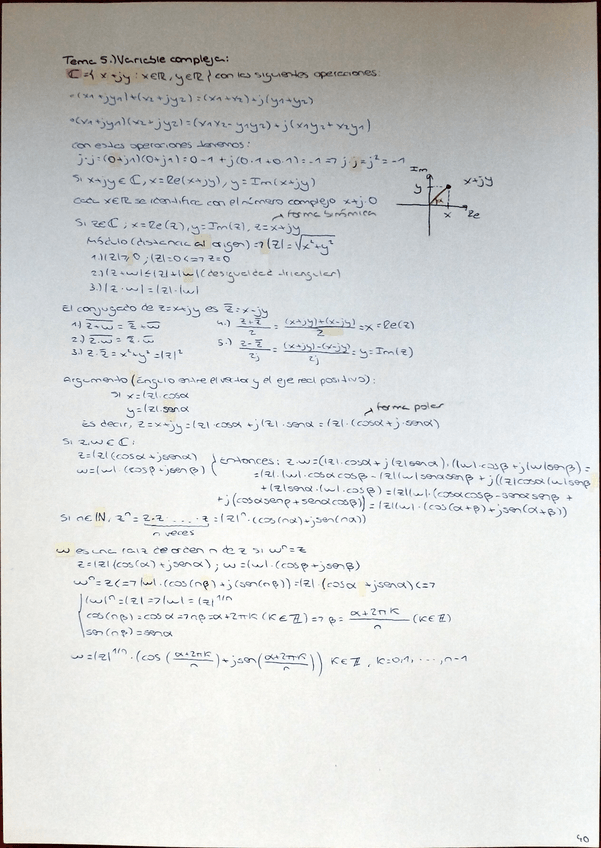 Tema 5.) Variable compleja:
ℂ = { x+jy : x∈ℝ, y∈ℝ } con las siguientes operaciones:
·(x1+jy1)+(x2+jy2)=(x1+x2)+j(y1+y2)
·(x1+jy1)(x2+jy2)=(x1x2-y1y2)+j(x1y2+x2y1)
con estas operaciones tenemos:
j·j=(0+j1)(0+j1)=0-1+j(0·1+0·1)=-1 => j·j=j²=-1
Si x+jy∈ℂ, x=Re(x+jy), y=Im(x+jy)
Im
y
x+jy
α
x
Re
cada x∈ℝ se identifica con el número complejo x+j·0
forma binómica
Si z∈ℂ; x=Re(z), y=Im(z), z=x+jy
Módulo (distancia al origen) => |z|=√x²+y²
1.) |z|≥0, |z|=0 <=> z=0
2.) |z+w|≤|z|+|w| (desigualdad triangular)
3.) |z·w|=|z|·|w|
El conjugado de z=x+jy es z̄=x-jy
1.) z+w = z̄+w̄
4.) (z+z̄)/2 = ((x+jy)+(x-jy))/2 = x = Re(z)
2.) z·w = z̄·w̄
5.) (z-z̄)/2j = ((x+jy)-(x-jy))/2j = y = Im(z)
3.) z·z̄ = x²+y² = |z|²
Argumento (Ángulo entre el vector y el eje real positivo):
Si x=|z|·cosα
y=|z|·senα
forma polar
Es decir, z=x+jy=|z|·cosα+j|z|·senα=|z|·(cosα+j·senα)
Si z,w∈ℂ:
z=|z|(cosα+jsenα)
w=|w|·(cosβ+jsenβ)
Entonces: z·w=(|z|·cosα+j|z|senα)·(|w|·cosβ+j|w|senβ)=
=|z|·|w|·cosαcosβ-|z||w|senαsenβ+j(|z|cosα|w|senβ
+|z|senα·|w|·cosβ)=|z||w|·(cosαcosβ-senαsenβ+
+j(cosαsenβ+senαcosβ)]=|z||w|·(cos(α+β)+jsen(α+β))
Si n∈ℕ, zⁿ=z·z·...·z=|z|ⁿ·(cos(nα)+jsen(nα))
n veces
w es una raíz de orden n de z si wⁿ=z
z=|z|(cos(α)+jsenα); w=|w|·(cosβ+jsenβ)
wⁿ=z <=> |w|ⁿ·(cos(nβ)+j(sen(nβ))=|z|·(cosα+jsenα) <=>
|w|ⁿ=|z| => |w|=|z|^1/n
cos(nβ)=cosα => nβ=α+2πK (K∈ℤ) => β=(α+2πK)/n (K∈ℤ)
sen(nβ)=senα
w=|z|^1/n·(cos((α+2πK)/n)+jsen((α+2πK)/n)) K∈ℤ, K=0,1,...,n-1
40